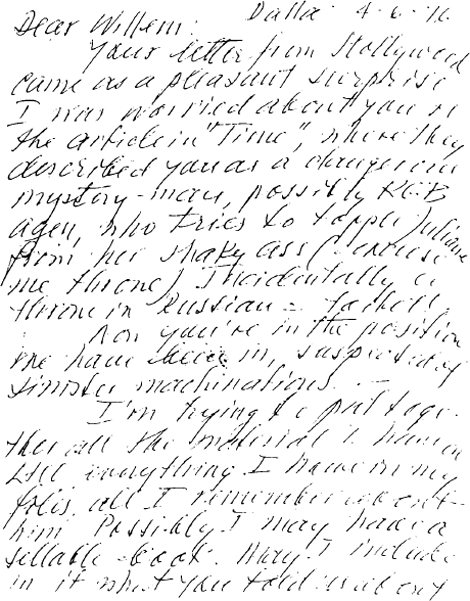 Dear Willem: Dallas 4.6.76
Your letter from Hollywood
came as a pleasant surprise
I was worried about you re
the article in "Time", where they
described you as a dangerous
mystery-man, possibly KGB
agen, who tries to topple Juliana
from her shaky ass (excuse
me throne) Incidentally a
throne in Russian =
Now you're in the position
we have been in, suspected of
sinister machinations.
I'm trying to put toge-
ther all the material I have on
LHO everything I have in my
all I remember about
him Possibly I may have a
sellable book. May I include
in it what you told us about